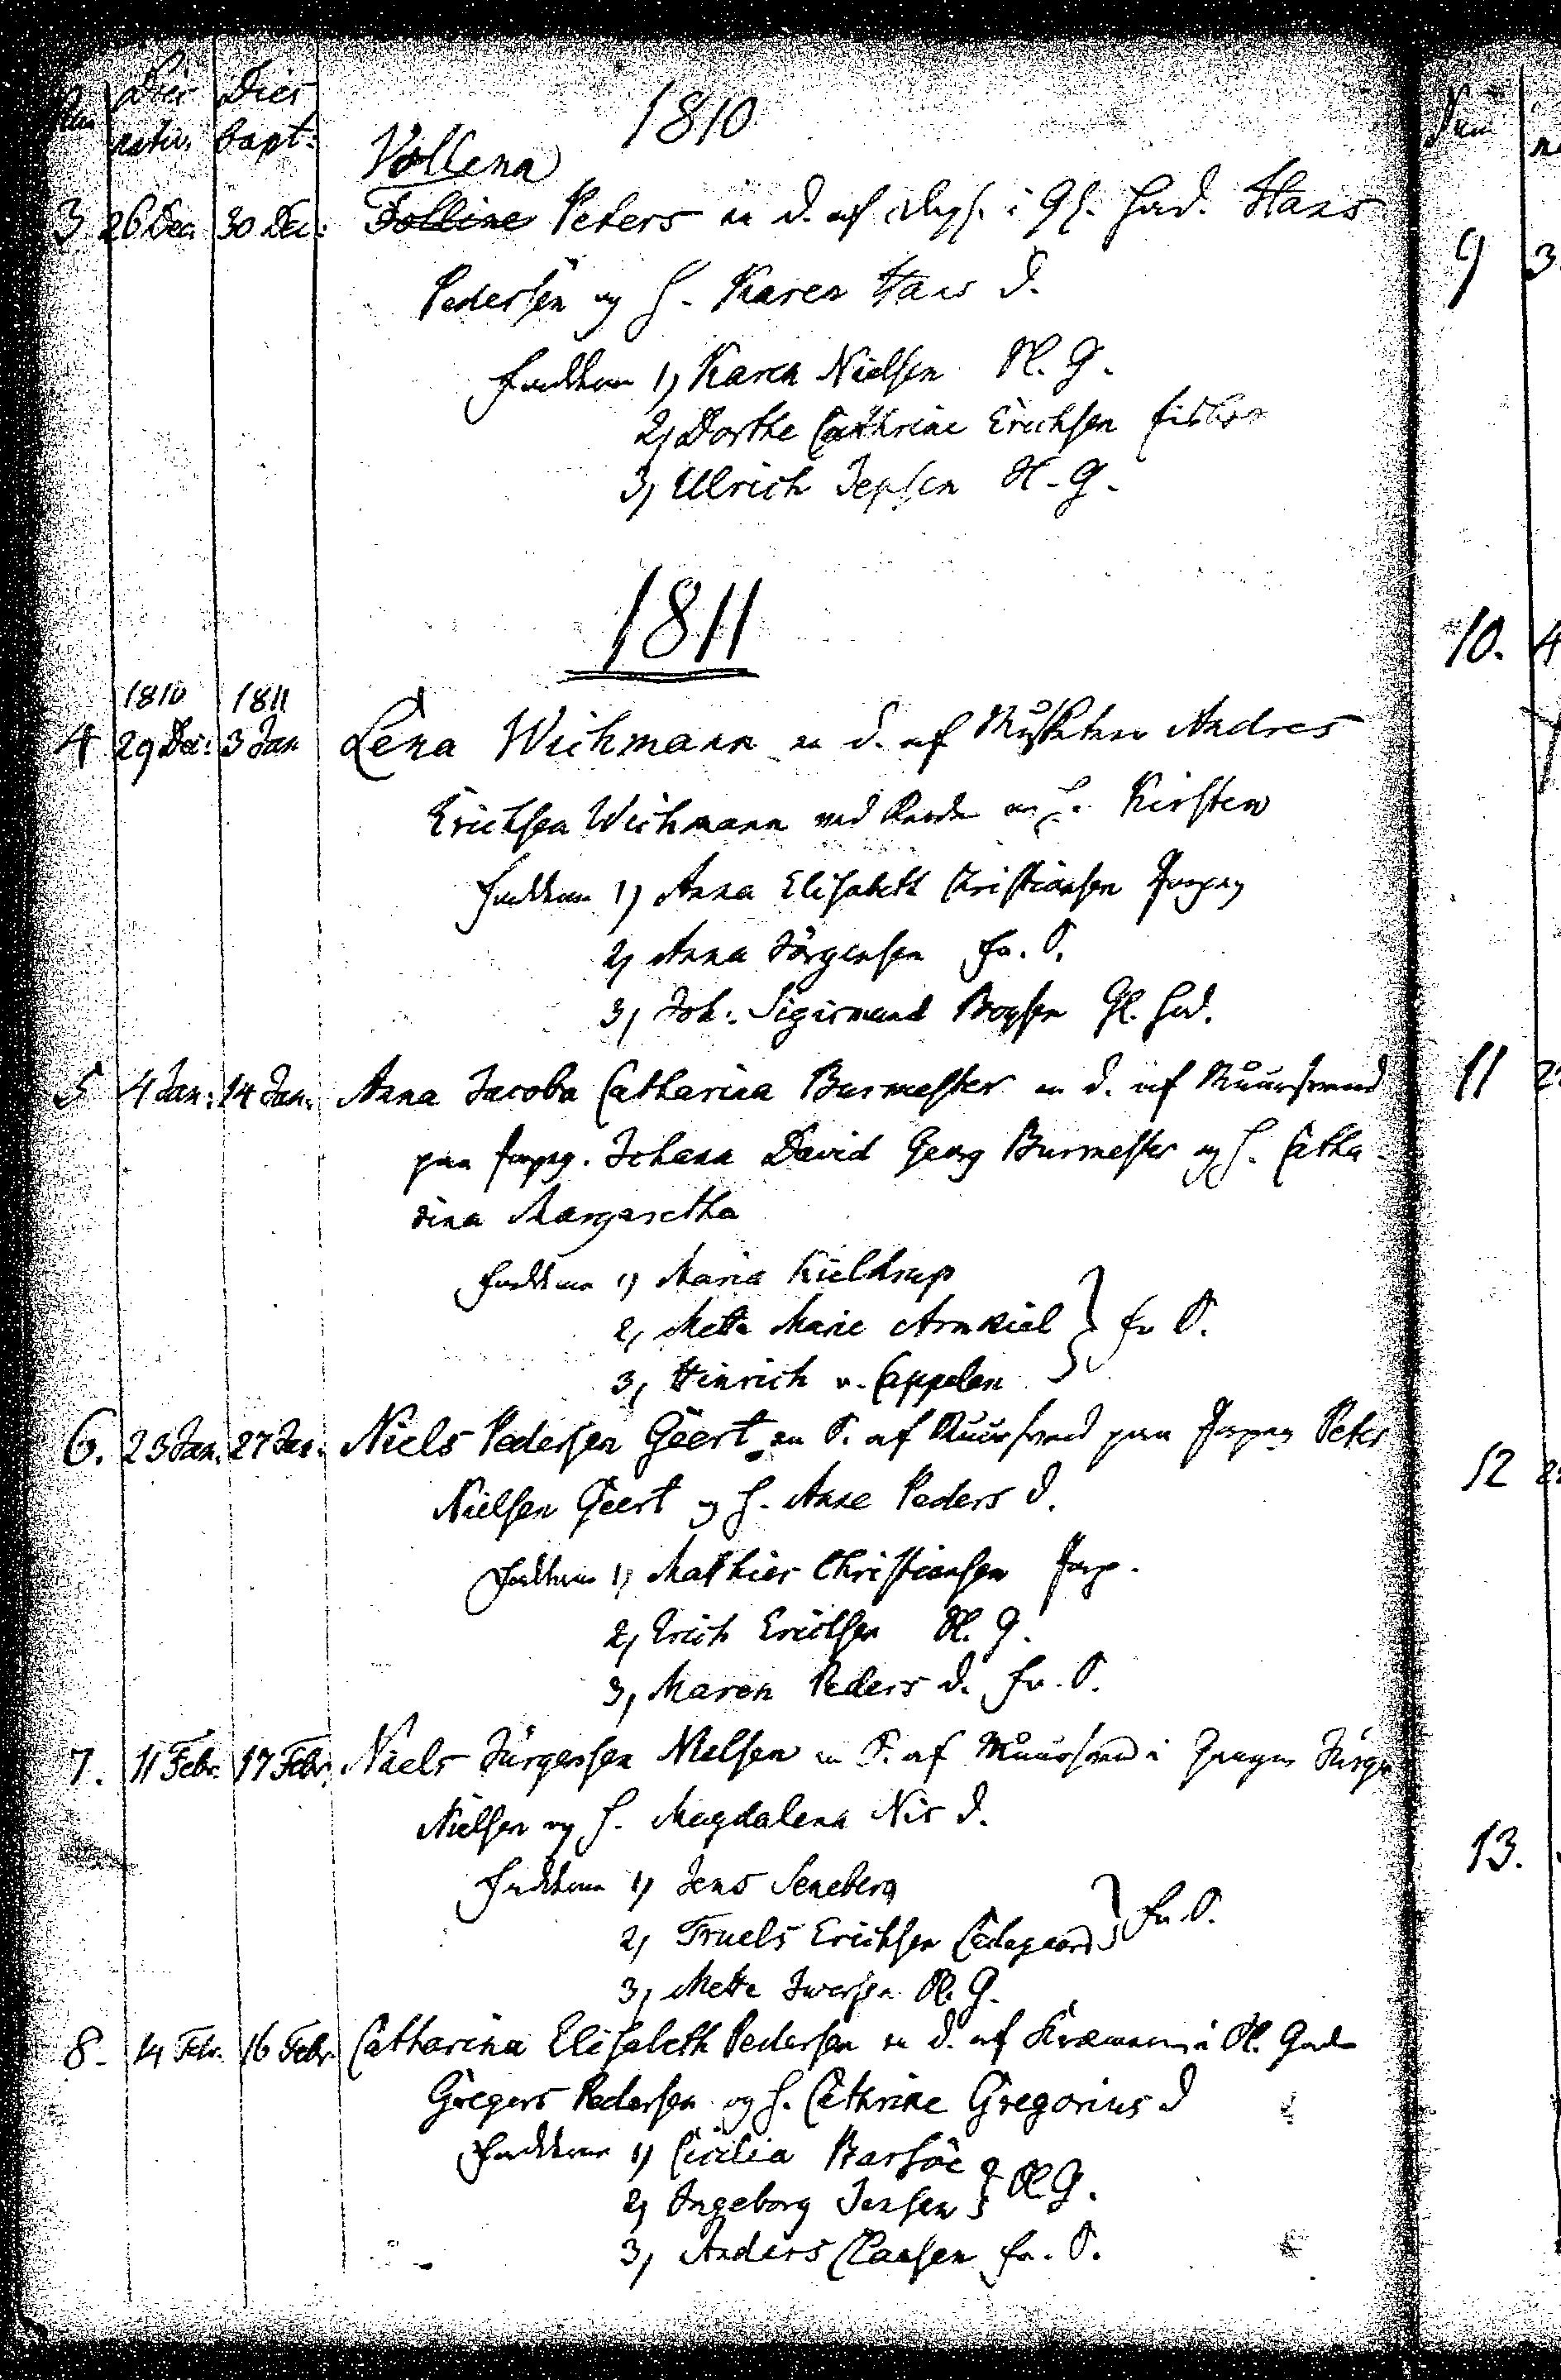 Num Dies nativ. Dies bapt:
1810
Vollena
3 26 Dec. 30 Dec: Folline Peters en d. af i Gl. Had. Hans
Pedersen og H. Karen Hans d.
Faddere 1) Karen Nielsen Sl. G.
2) Dorthe Cathrine Erichsen
3) Ulrich Jepsen Sl. G.
1811
1810 1811
4 29 Dec: 3 Jan Lena Wichmann en d. af Andres
Erichsen Wichmann og H. Kirsten
Faddere 1) Anna Elisabeth Christiansen
2) Anna Jörgensen Fr. S.
3) Joh: Sigismund Boysen Gl. Had.
5 4 Jan: 14 Jan. Anna Jacoba Catharina Burmester en d. af Muursvend
paa Johann David Georg Burmester og H. Catha
rina Margaretha
Faddere 1) Maria Kieldrup
2) Mette Marie Arnkiel Fr S.
3) Hinrich v. Cappelen
6. 23 Jan. 27 Jan. Niels Pedersen Geert en S. af Muursvend paa Peter
Nielsen Geert og H. Anne Peders d.
Faddere 1) Mathias Christiansen
2) Erich Erichsen Sl. G.
3) Maren Peders d. Fr. S.
7. 11 Febr. 17 Febr. Niels Jürgensen Nielsen en S. af Muursvend i Jürgen
Nielsen og H. Magdalena Nis d.
Faddere 1) Jens Seneberg
2) Truels Erichsen Fr. S.
3) Mette Iwersen Sl. G.
8. 14 Febr. 16 Febr. Catharina Elisabeth Pedersen en d. af i Sl. Gade
Gregers Pedersen og H. Cathrine Gregorius d
Faddere 1) Cicilia Barsöe
2) Ingeborg Jensen Sl. G.
3) Anders Clausen Fr. S.
Num
9 3
10. 4
11 2
12 2
13.